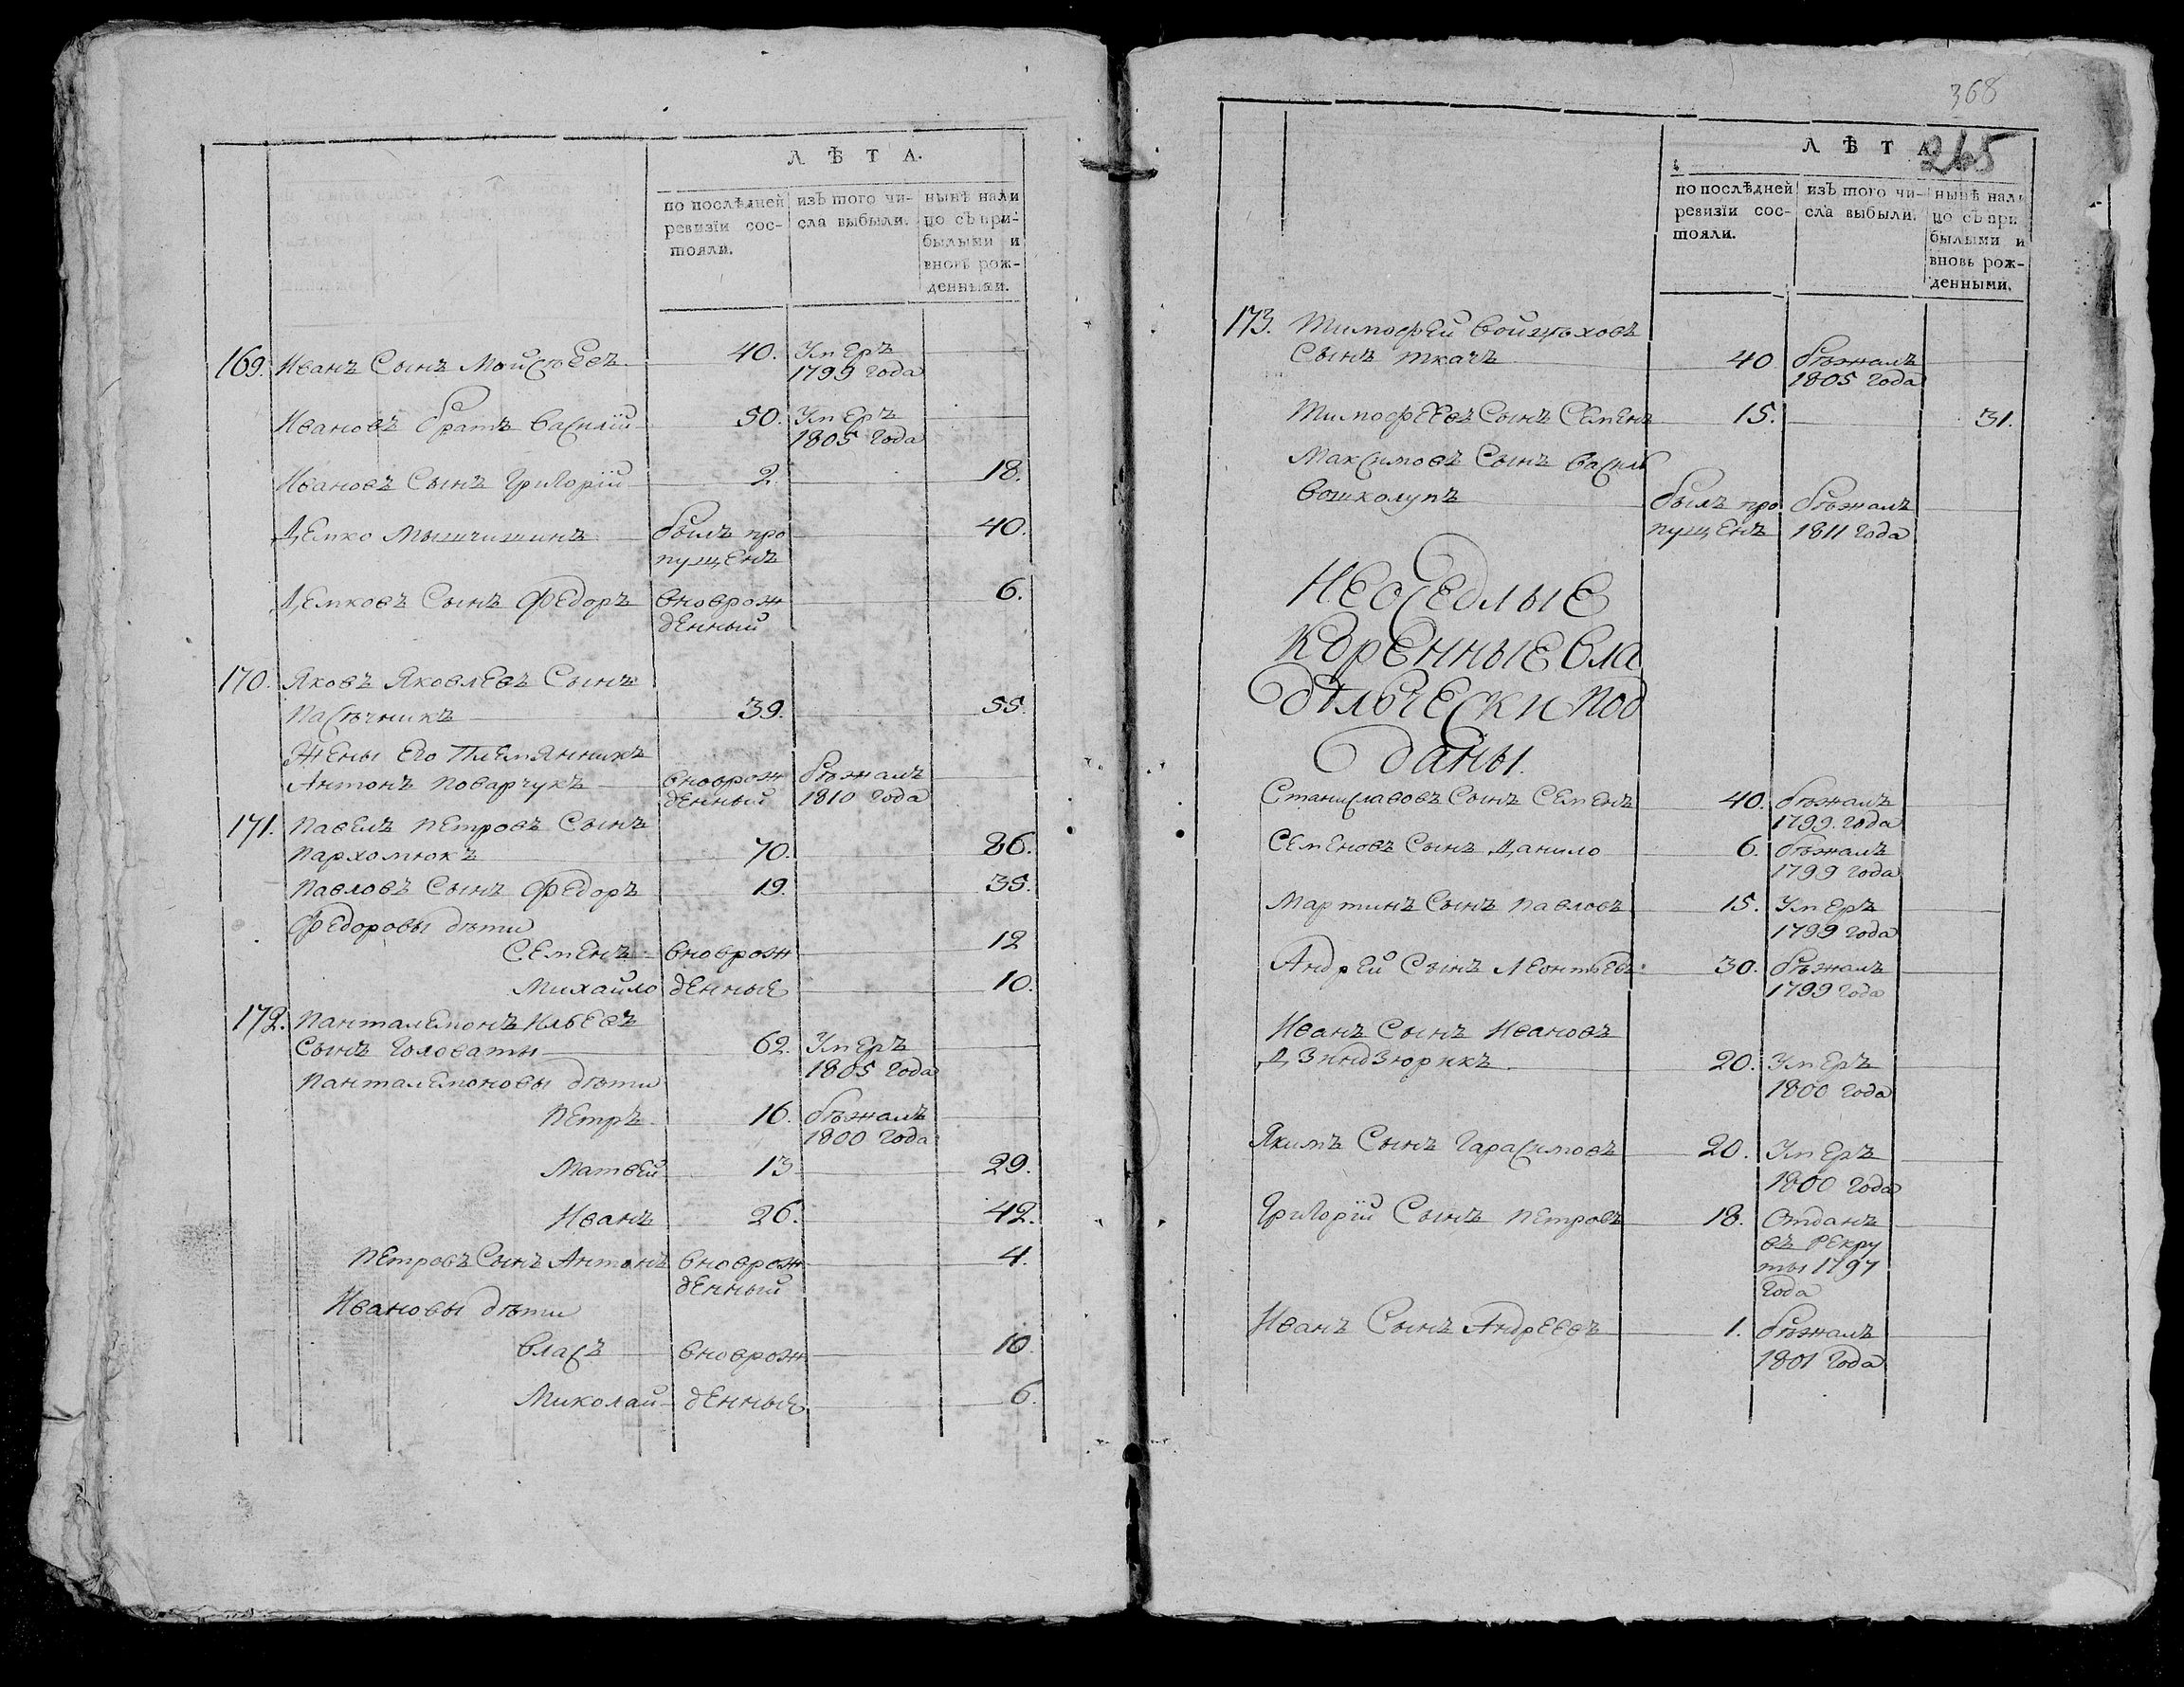 Л Ѣ Т А.
по послѣдней ревизіи состояли. изъ того числа выбыли. нынѣ налицо съ прибылыми и вновь рожденными.
169. Иванъ Сынъ Мойсѣевъ 40. Умеръ
1799 года
Ивановъ братъ Василій 50. Умеръ
1805 года
Ивановъ Сынъ Григорій 2. 18.
Демко Мышчишинъ былъ про 40.
пущенъ
Демковъ Сынъ Федоръ вноврож 6.
денный
170. Яковъ Яковлевъ Сынъ
Пасѣчникъ 39. 55.
Жены Его Племянникъ
Антонъ Поварчукъ вноврож бѣжалъ
денный 1810 года
171. Павелъ Петровъ Сынъ
Пархомюкъ 70. 86.
Павловъ Сынъ Федоръ 19. 35.
Федоровы дѣти
Семенъ вноврож 12
Михайло денные 10.
172. Панталемонъ Ильевъ
Сынъ Головаты 62. Умеръ
1805 года
Панталемоновы дѣти
Петръ 16. бѣжалъ
1800 года
Матвей 13 29.
Иванъ 26. 42.
Петровъ Сынъ Антонъ вноврож 4.
денный
Ивановы дѣти
Власъ вноврож 10
Миколай денные 6.
368
265
Л Ѣ Т А.
по послѣдней ревизіи состояли. изъ того числа выбыли. нынѣ налицо съ прибылыми и вновь рожденными.
173. Тимофей Войцѣховъ
Сынъ Ткачъ 40 бѣжалъ
1805 года
Тимофеевъ Сынъ Семенъ 15. 31.
Максимовъ Сынъ Василь
Вошколупъ былъ про бѣжалъ
пущенъ 1811 года
Неоседлые
Коренные вла
дѣльчески под
даны.
Станиславовъ Сынъ Семенъ 40. бѣжалъ
1799. года
Семеновъ Сынъ Данило 6. бѣжалъ
1799 года
Мартинъ Сынъ Павловъ 15. Умеръ
1799 года
Андрей Сынъ Леонтьевъ 30. бѣжалъ
1799 года
Иванъ Сынъ Ивановъ
Дзиндзюрикъ 20. Умеръ
1800 года
Якимъ Сынъ Гарасимовъ 20. Умеръ
1800 года
Григорій Сынъ Петровъ 18. Отданъ
въ рекру
ты 1797
года
Иванъ Сынъ Андреевъ 1. бѣжалъ
1801 года